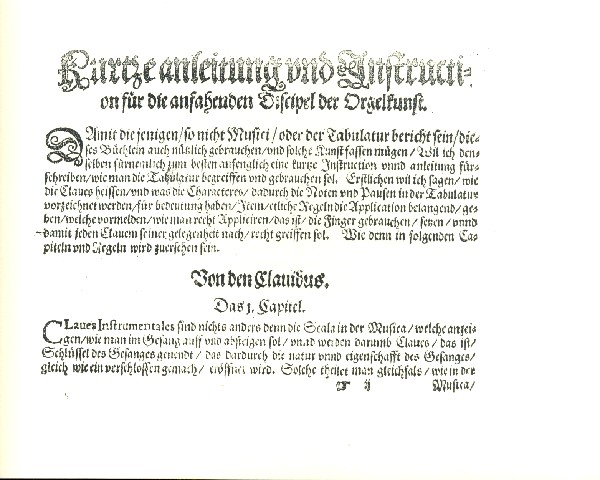 Kurtze anleitung vnd Instructi-
on für die anfahenden Discipel der Orgelkunst.
DAmit die jenigen/ so nicht Musici/ oder der Tabulatur bericht sein/ die-
ses Büchlein auch nützlich gebrauchen/ vnd solche Kunst fassen mügen/ Wil ich den-
selben fürnemlich zum besten anfenglich eine kurtze Instruction vnnd anleitung für-
schreiben/ wie man die Tabulatur begreiffen vnd gebrauchen sol. Erstlichen wil ich sagen/ wie
die Claues heissen/ vnd was die Characteres/ dadurch die Noten vnd Pausen in der Tabulatur
vorzeichnet werden/ für bedeutung haben/ Item/ etliche Regeln die Application belangend/ ge-
ben/ welche vormelden/ wie man recht Appliciren/ das ist/ die Finger gebrauchen/ setzen/ vnnd
damit jeden Clauem seiner gelegenheit nach/ recht greiffen sol. Wie denn in folgenden Ca-
piteln vnd Regeln wird zuersehen sein.
Von den Clauibus.
Das 1. Capitel.
CLaues Instrumentales sind nichts anders denn die Scala in der Musica/ welche anzei-
gen/ wie man im Gesang auff vnd absteigen sol/ vnnd werden darumb Claues/ das ist/
Schlüssel des Gesanges genendt/ das dardurch die natur vnnd eigenschafft des Gesanges/
gleich wie ein verschlossen gemach/ eröffnet wird. Solche theilet man gleichfals/ wie in der
ij Musica/